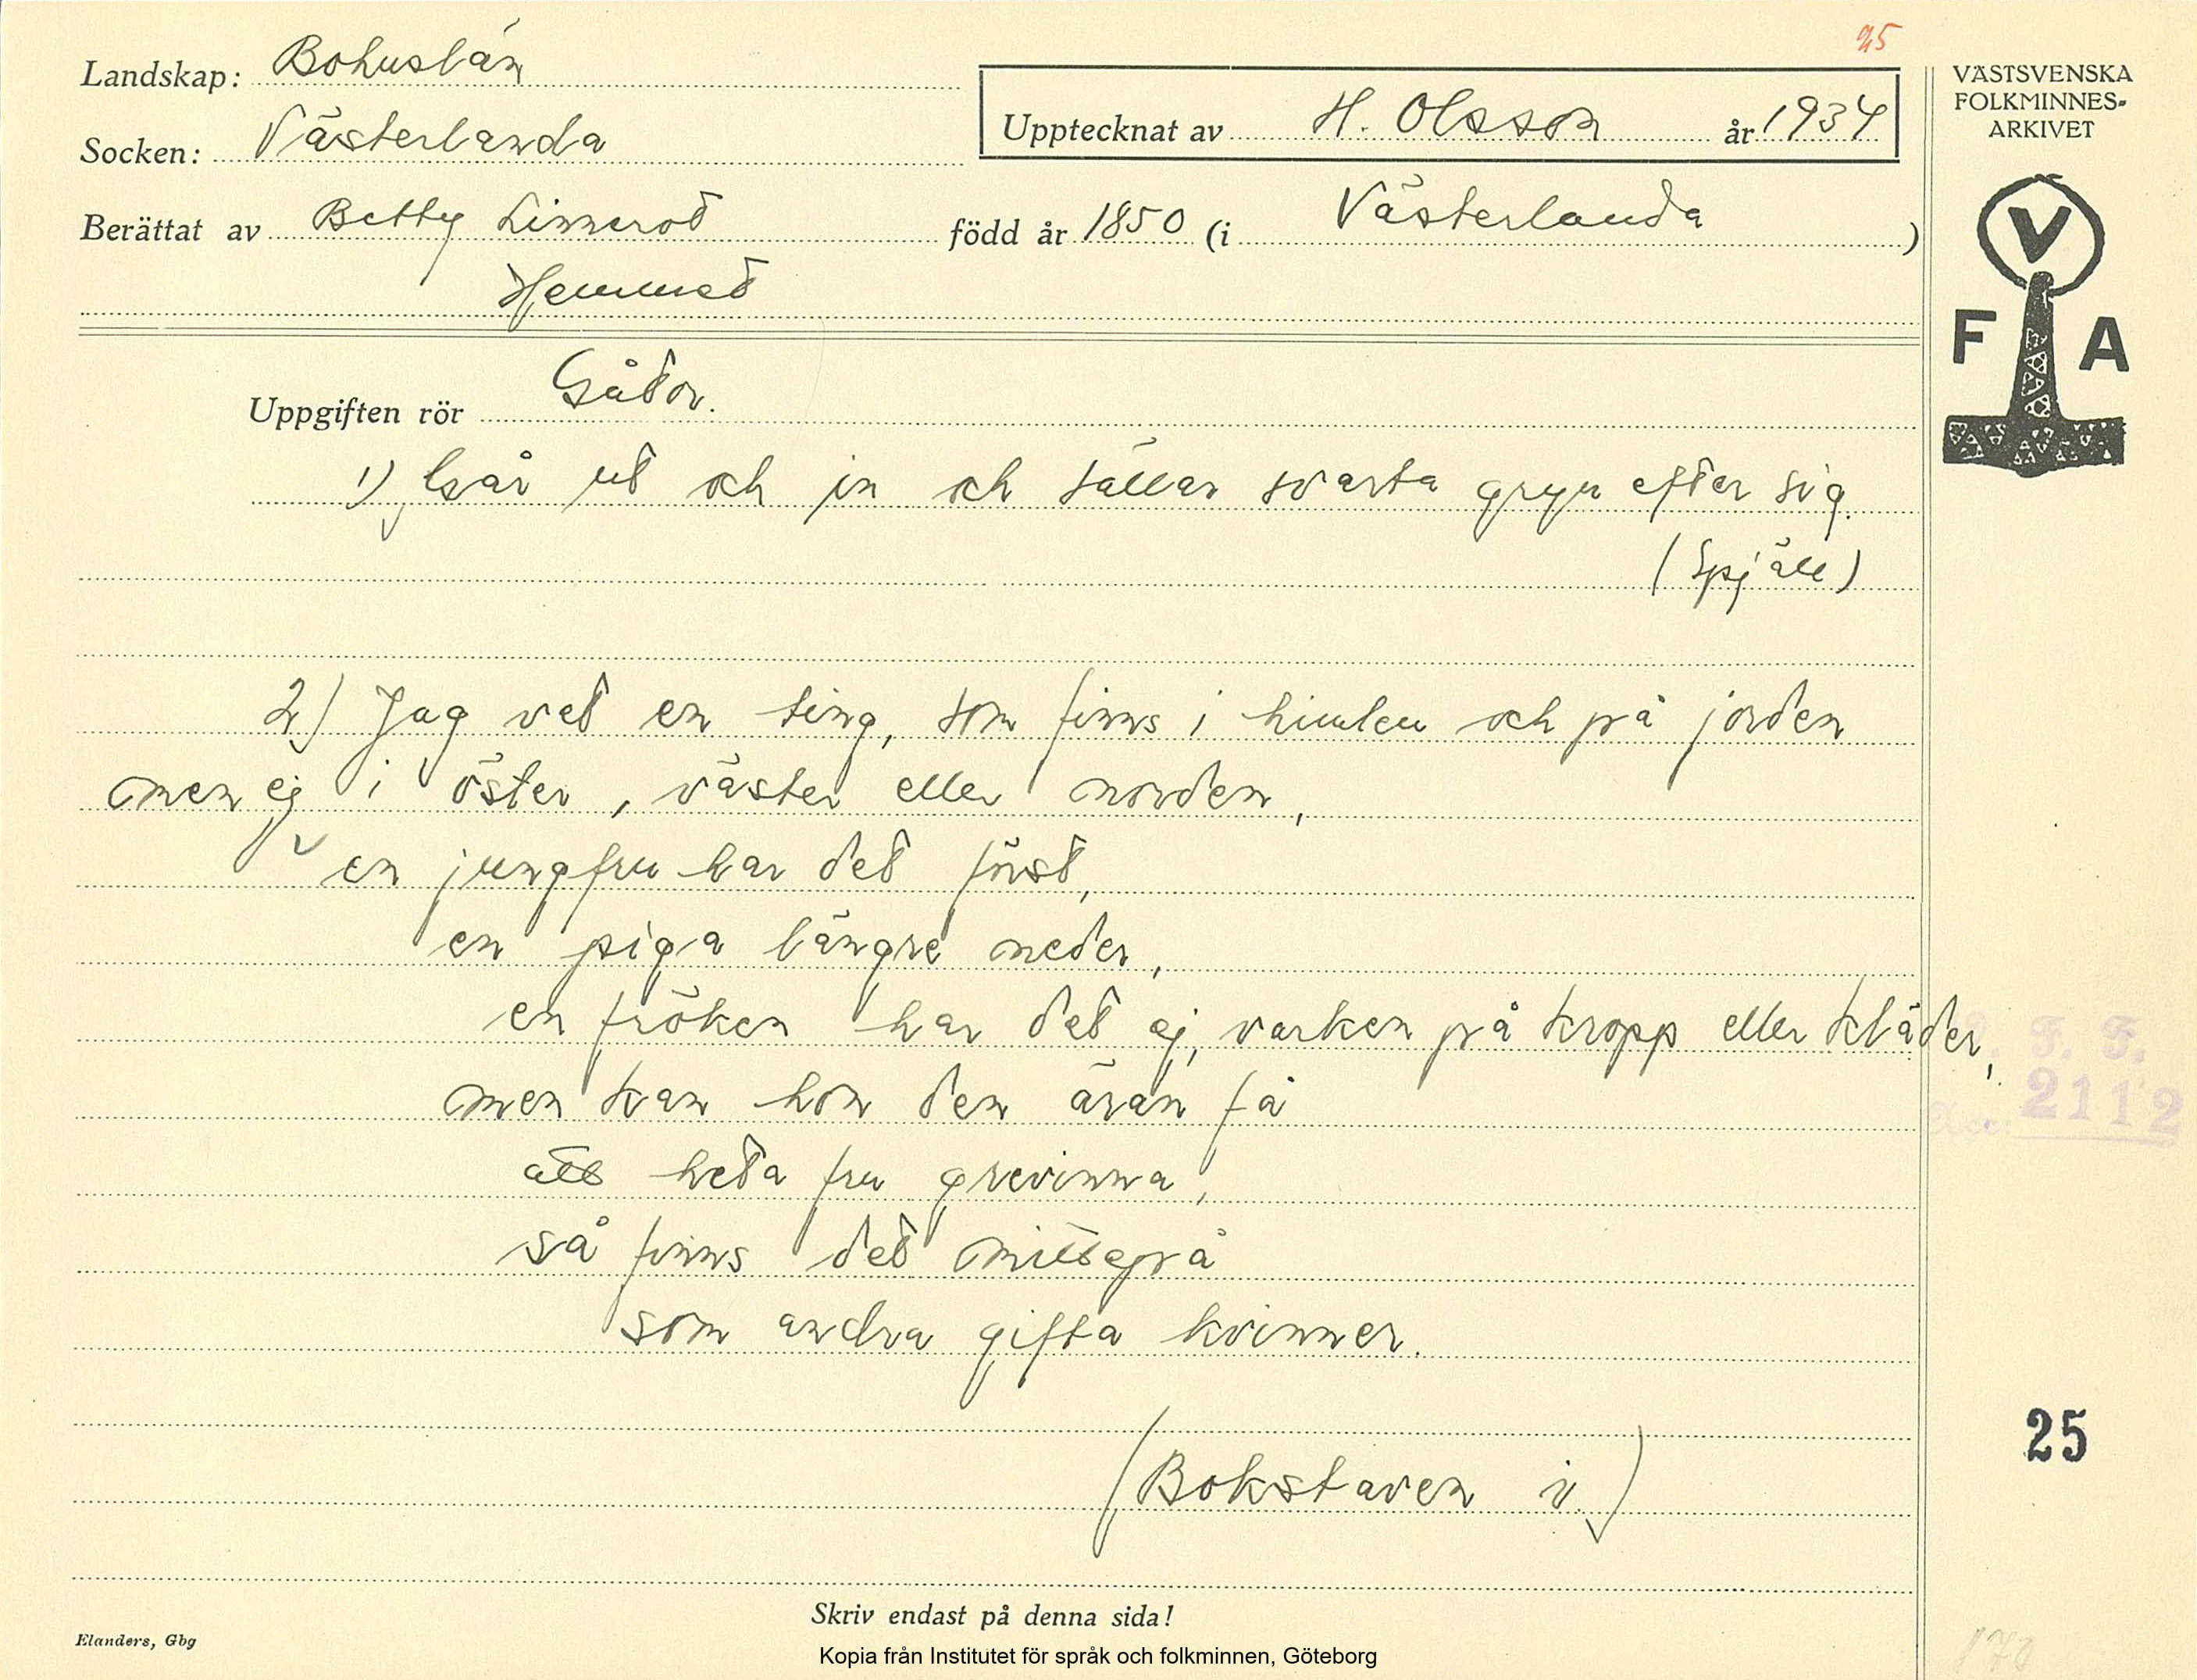 25
Landskap: Bohuslän
Socken: Västerlanda
Upptecknat av H. Olsson år 1934
Berättat av Betty Limerod född år 1850 (i Västerlanda)
Hemmet
VÄSTSVENSKA
FOLKMINNES-
ARKIVET
V
F A
Uppgiften rör Gåtor.
1) Går ut och in och fäller svarta gryn efter sig.
(Spjäll)
2) Jag vet en ting, som finns i himlen och på jorden
men ej i öster, väster eller norden,
en jungfru har det först,
en piga längre neder,
en fröken har det ej, varken på kropp eller kläder,
men kan hon den äran få
att heta fru grevinna,
så finns det mittepå
som andra gifta kvinner.
(Bokstaven i)
F. F.
Acc: 2112
25
Skriv endast på denna sida!
Elanders, Gbg
Kopia från Institutet för språk och folkminnen, Göteborg